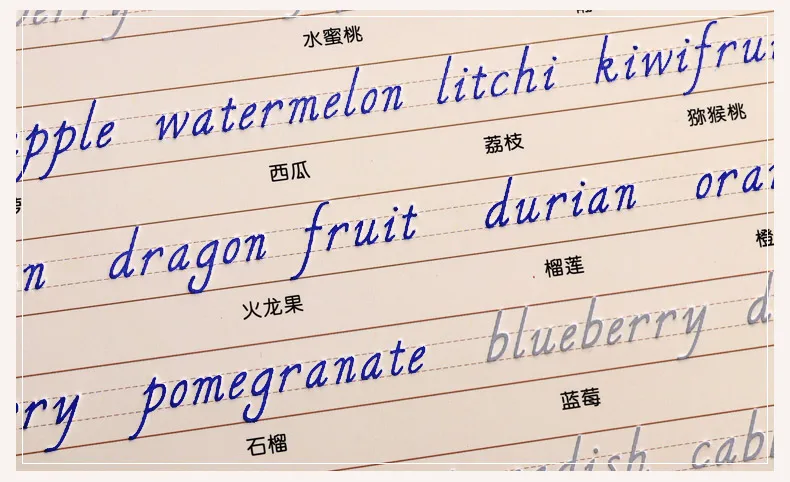 erry
水蜜桃
pple watermelon litchi kiwifrui
西瓜 荔枝 猕猴桃
n dragon fruit durian oran
火龙果 榴莲 橙
ry pomegranate blueberry d
石榴 蓝莓
radish cabb